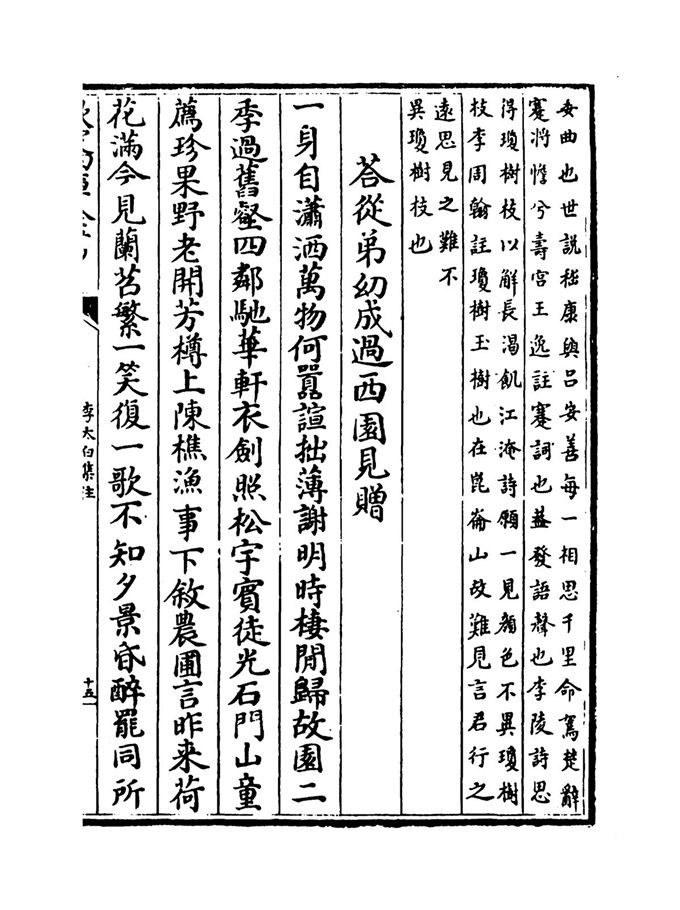 安曲也世說嵇康與吕安善每一相思千里命駕楚辭
蹇將憺兮壽宮王逸註蹇詞也葢發語聲也李陵詩思
得瓊樹枝以解長渴飢江淹詩願一見顔色不異瓊樹
枝李周翰註瓊樹玉樹也在崑崙山故難見言君行之
遠思見之難不
異瓊樹枝也
荅從弟幼成過西園見贈
一身自瀟洒萬物何嚣諠拙薄謝明時棲閒歸故園二
季過舊壑四鄰馳華軒衣劍照松宇賓徒光石門山童
薦珍果野老開芳樽上陳樵漁事下敘農圃言昨来荷
花滿今見蘭苕繁一笑復一歌不知夕景昏醉罷同所
李太白集注
十五